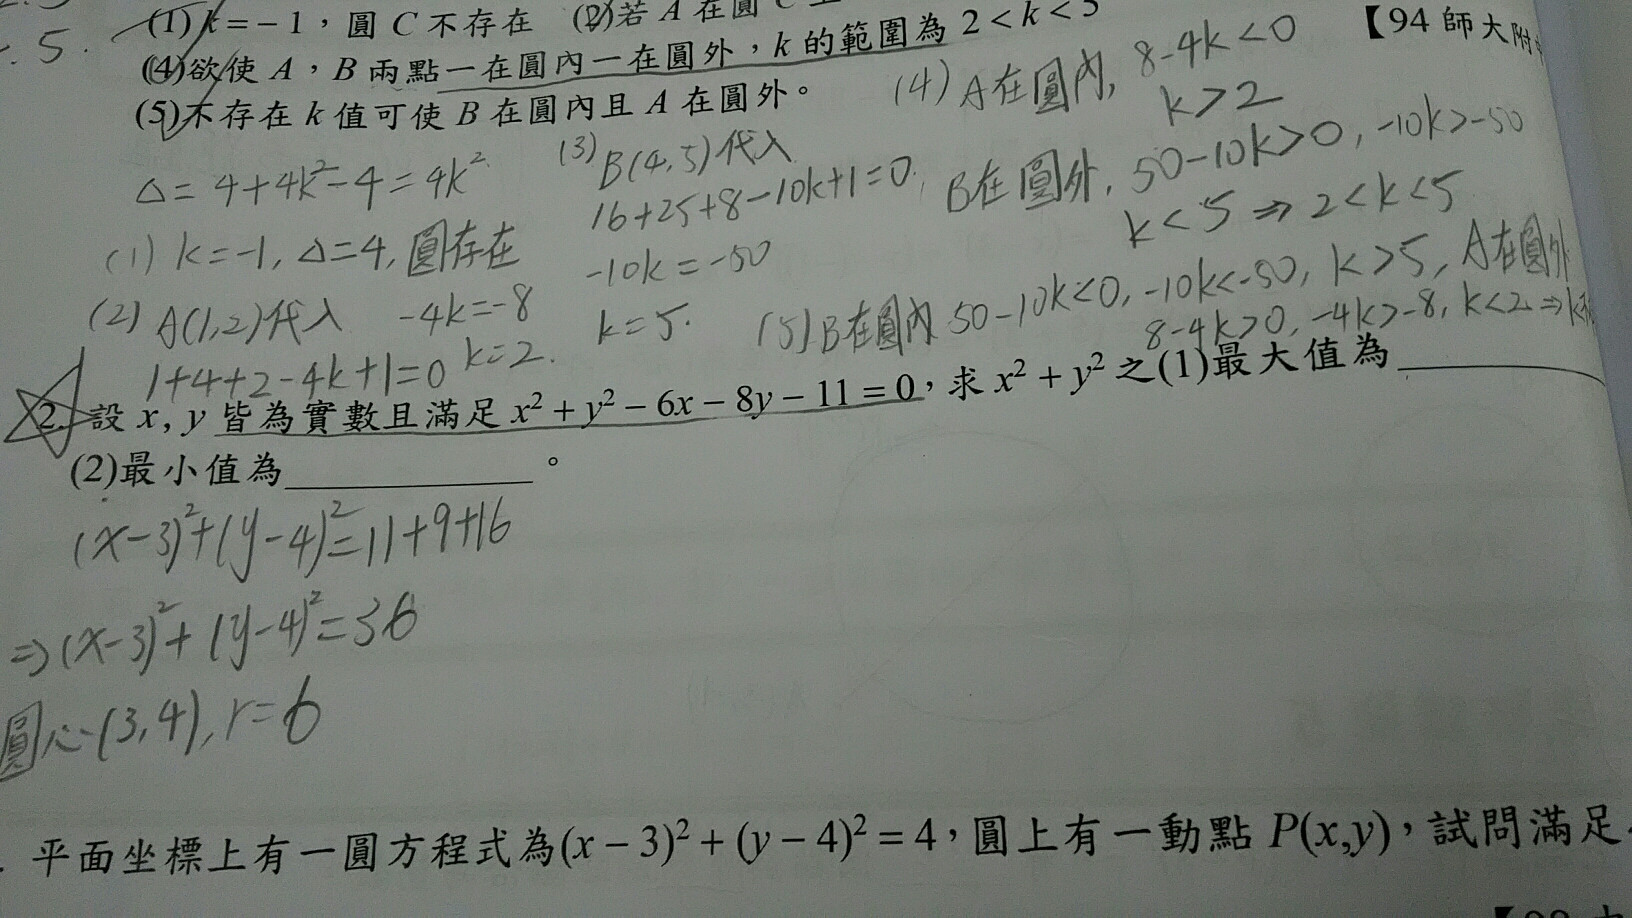 (1) k = −1，圓 C 不存在 (2)若 A 在圓 C 上
. 5 .
【94 師大附
(4)欲使 A，B 兩點一在圓內一在圓外，k 的範圍為 2 < k < 5
(5)不存在 k 值可使 B 在圓內且 A 在圓外。
(4) A在圓內, 8-4k<0
k>2
B在圓外, 50-10k>0, -10k>-50
k<5 ⇒ 2<k<5
Δ= 4+4k²-4=4k²
(1) k=-1, Δ=4, 圓存在
(2) A(1,2)代入 -4k=-8
1+4+2-4k+1=0 k=2.
(3) B(4,5)代入
16+25+8-10k+1=0.
-10k=-50
k=5.
(5) B在圓內 50-10k<0, -10k<-50, k>5, A在圓外
8-4k>0, -4k>-8, k<2. ⇒ k
2. 設 x, y 皆為實數且滿足 x² + y² − 6x − 8y − 11 = 0，求 x² + y² 之(1)最大值為
(2)最小值為 。
(x-3)²+(y-4)²=11+9+16
⇒(x-3)²+(y-4)²=36
圓心(3,4), r=6
. 平面坐標上有一圓方程式為(x − 3)² + (y − 4)² = 4，圓上有一動點 P(x,y)，試問滿足